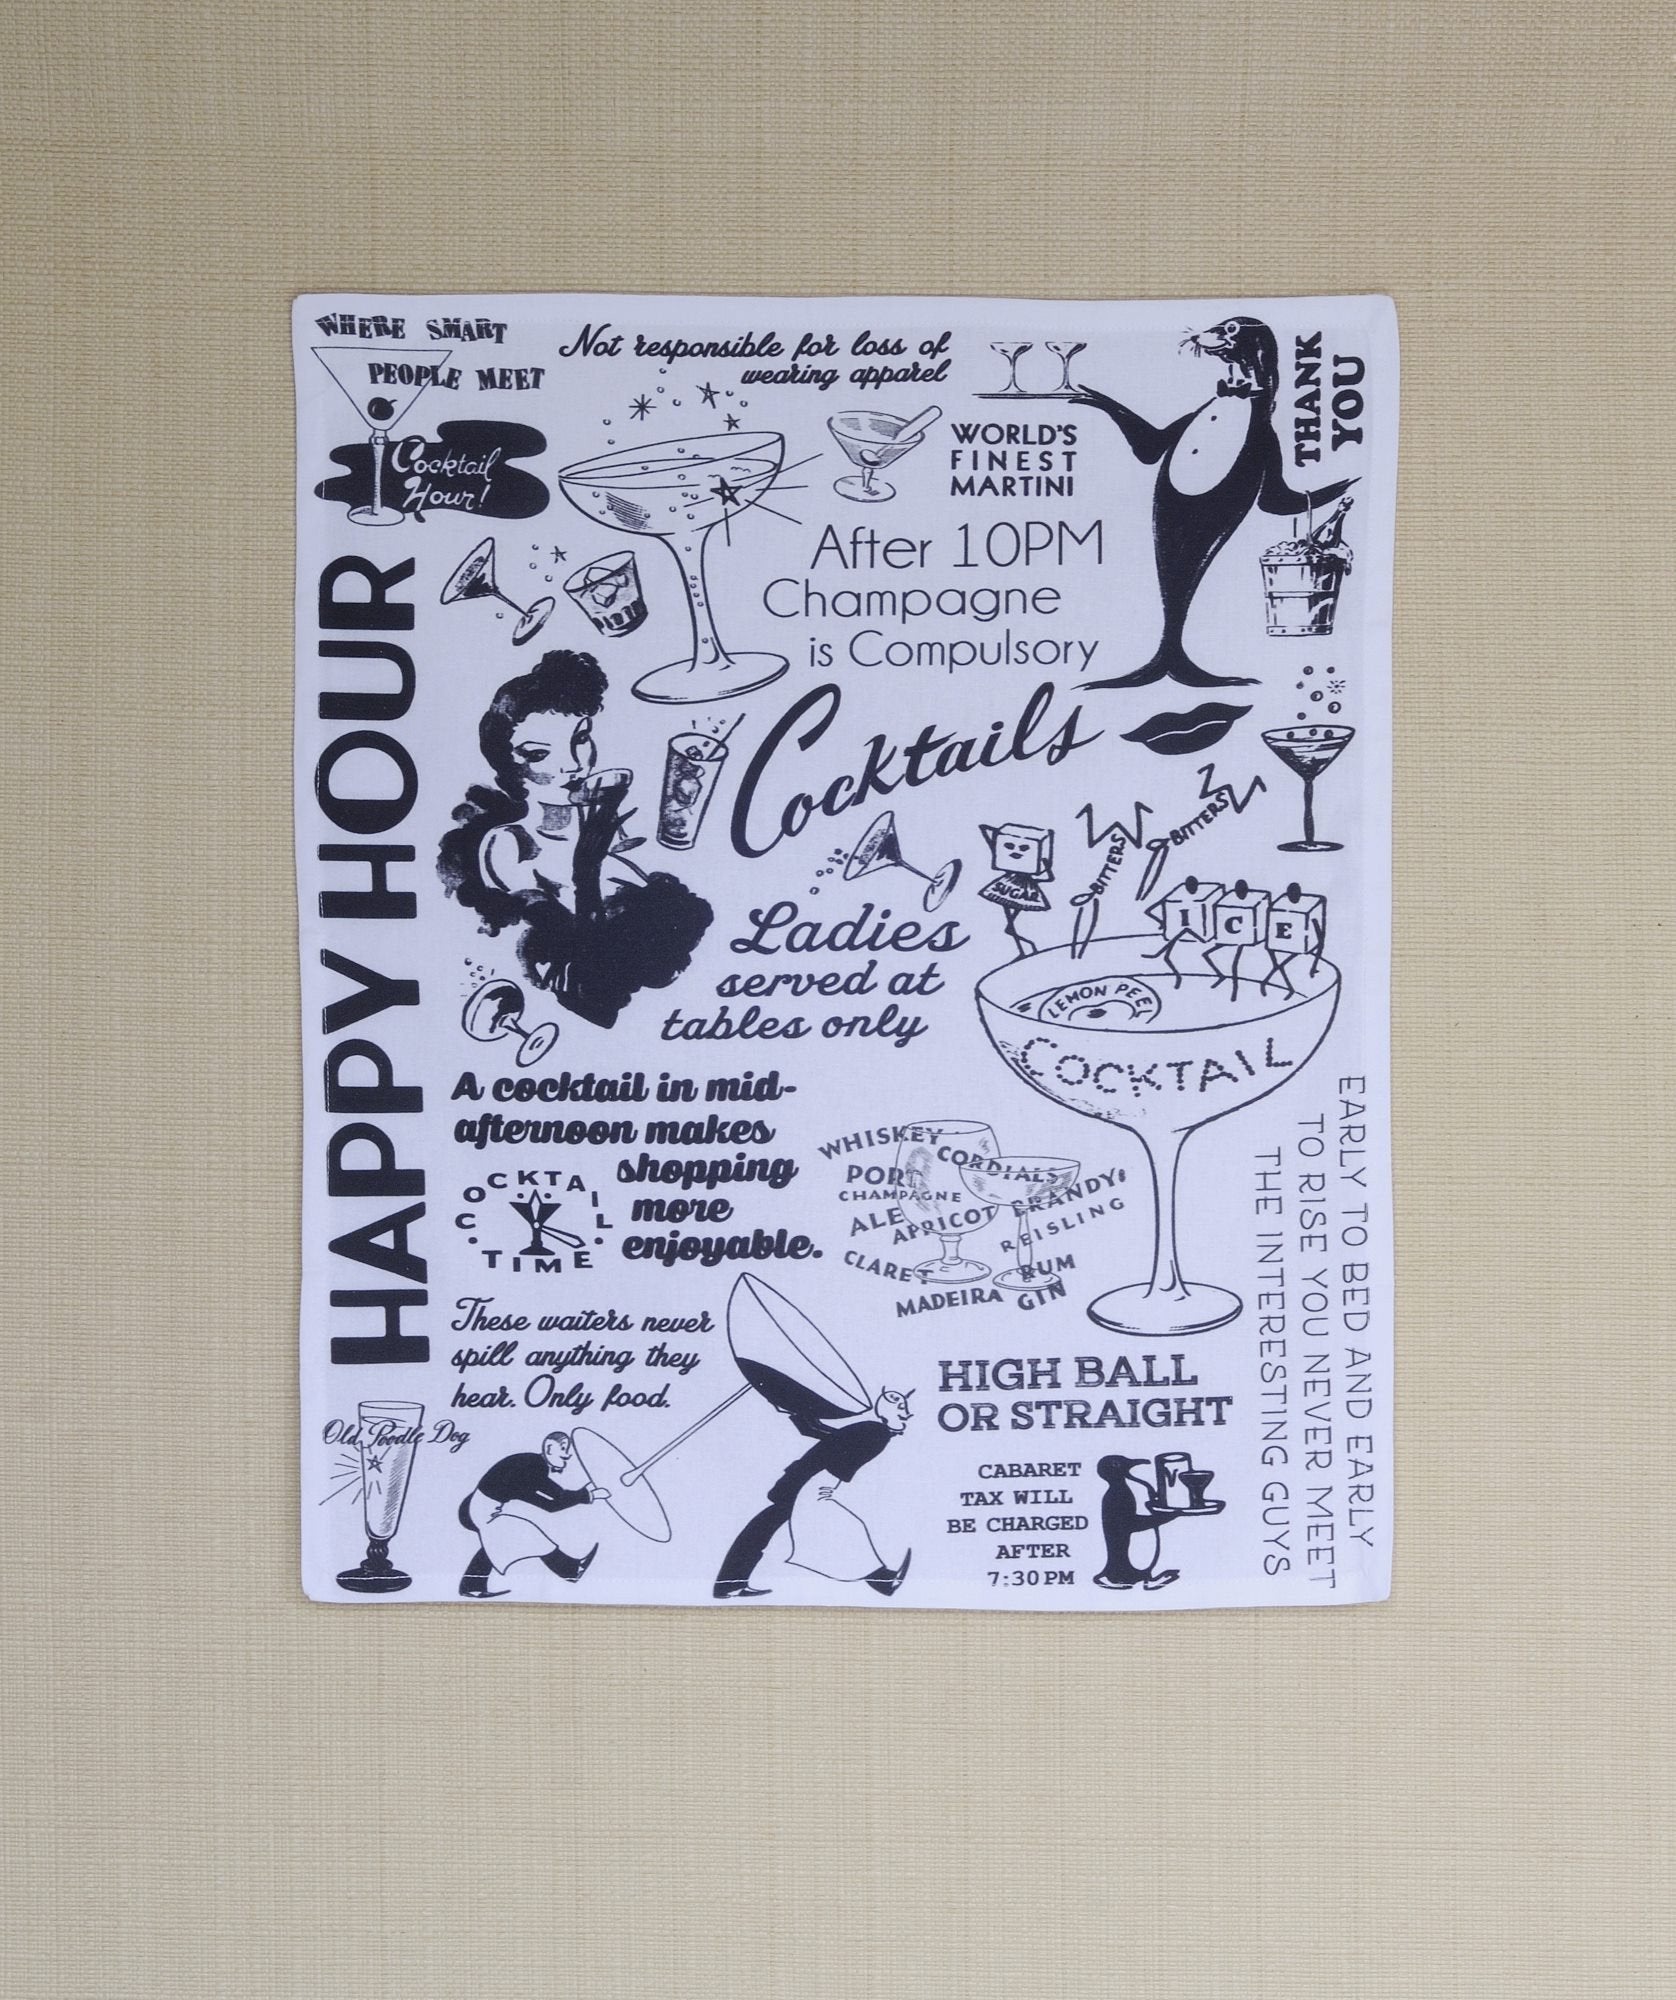 WHERE SMART
PEOPLE MEET
Cocktail
Hour!
Not responsible for loss of
wearing apparel
WORLD'S
FINEST
MARTINI
THANK
YOU
After 10PM
Champagne
is Compulsory
HAPPY HOUR
Cocktails
SUGAR
BITTERS
BITTERS
I C E
LEMON PEEL
COCKTAIL
Ladies
served at
tables only
A cocktail in mid-
afternoon makes
shopping
more
enjoyable.
COCKTAIL
TIME
WHISKEY
CORDIALS
PORT
CHAMPAGNE
BRANDY
ALE
APRICOT
REISLING
CLARET
RUM
MADEIRA
GIN
EARLY TO BED AND EARLY
TO RISE YOU NEVER MEET
THE INTERESTING GUYS
These waiters never
spill anything they
hear. Only food.
Old Poodle Dog
HIGH BALL
OR STRAIGHT
CABARET
TAX WILL
BE CHARGED
AFTER
7:30 PM